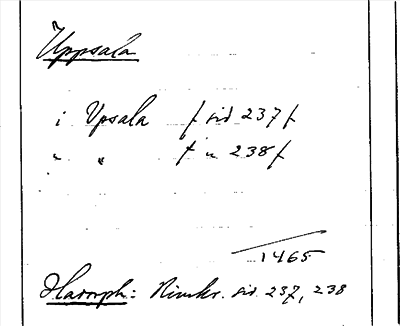 Uppsala
i Upsala f sid 237 f
" " f " 238 f
1465
Hamph: Rimkr. sid 237, 238